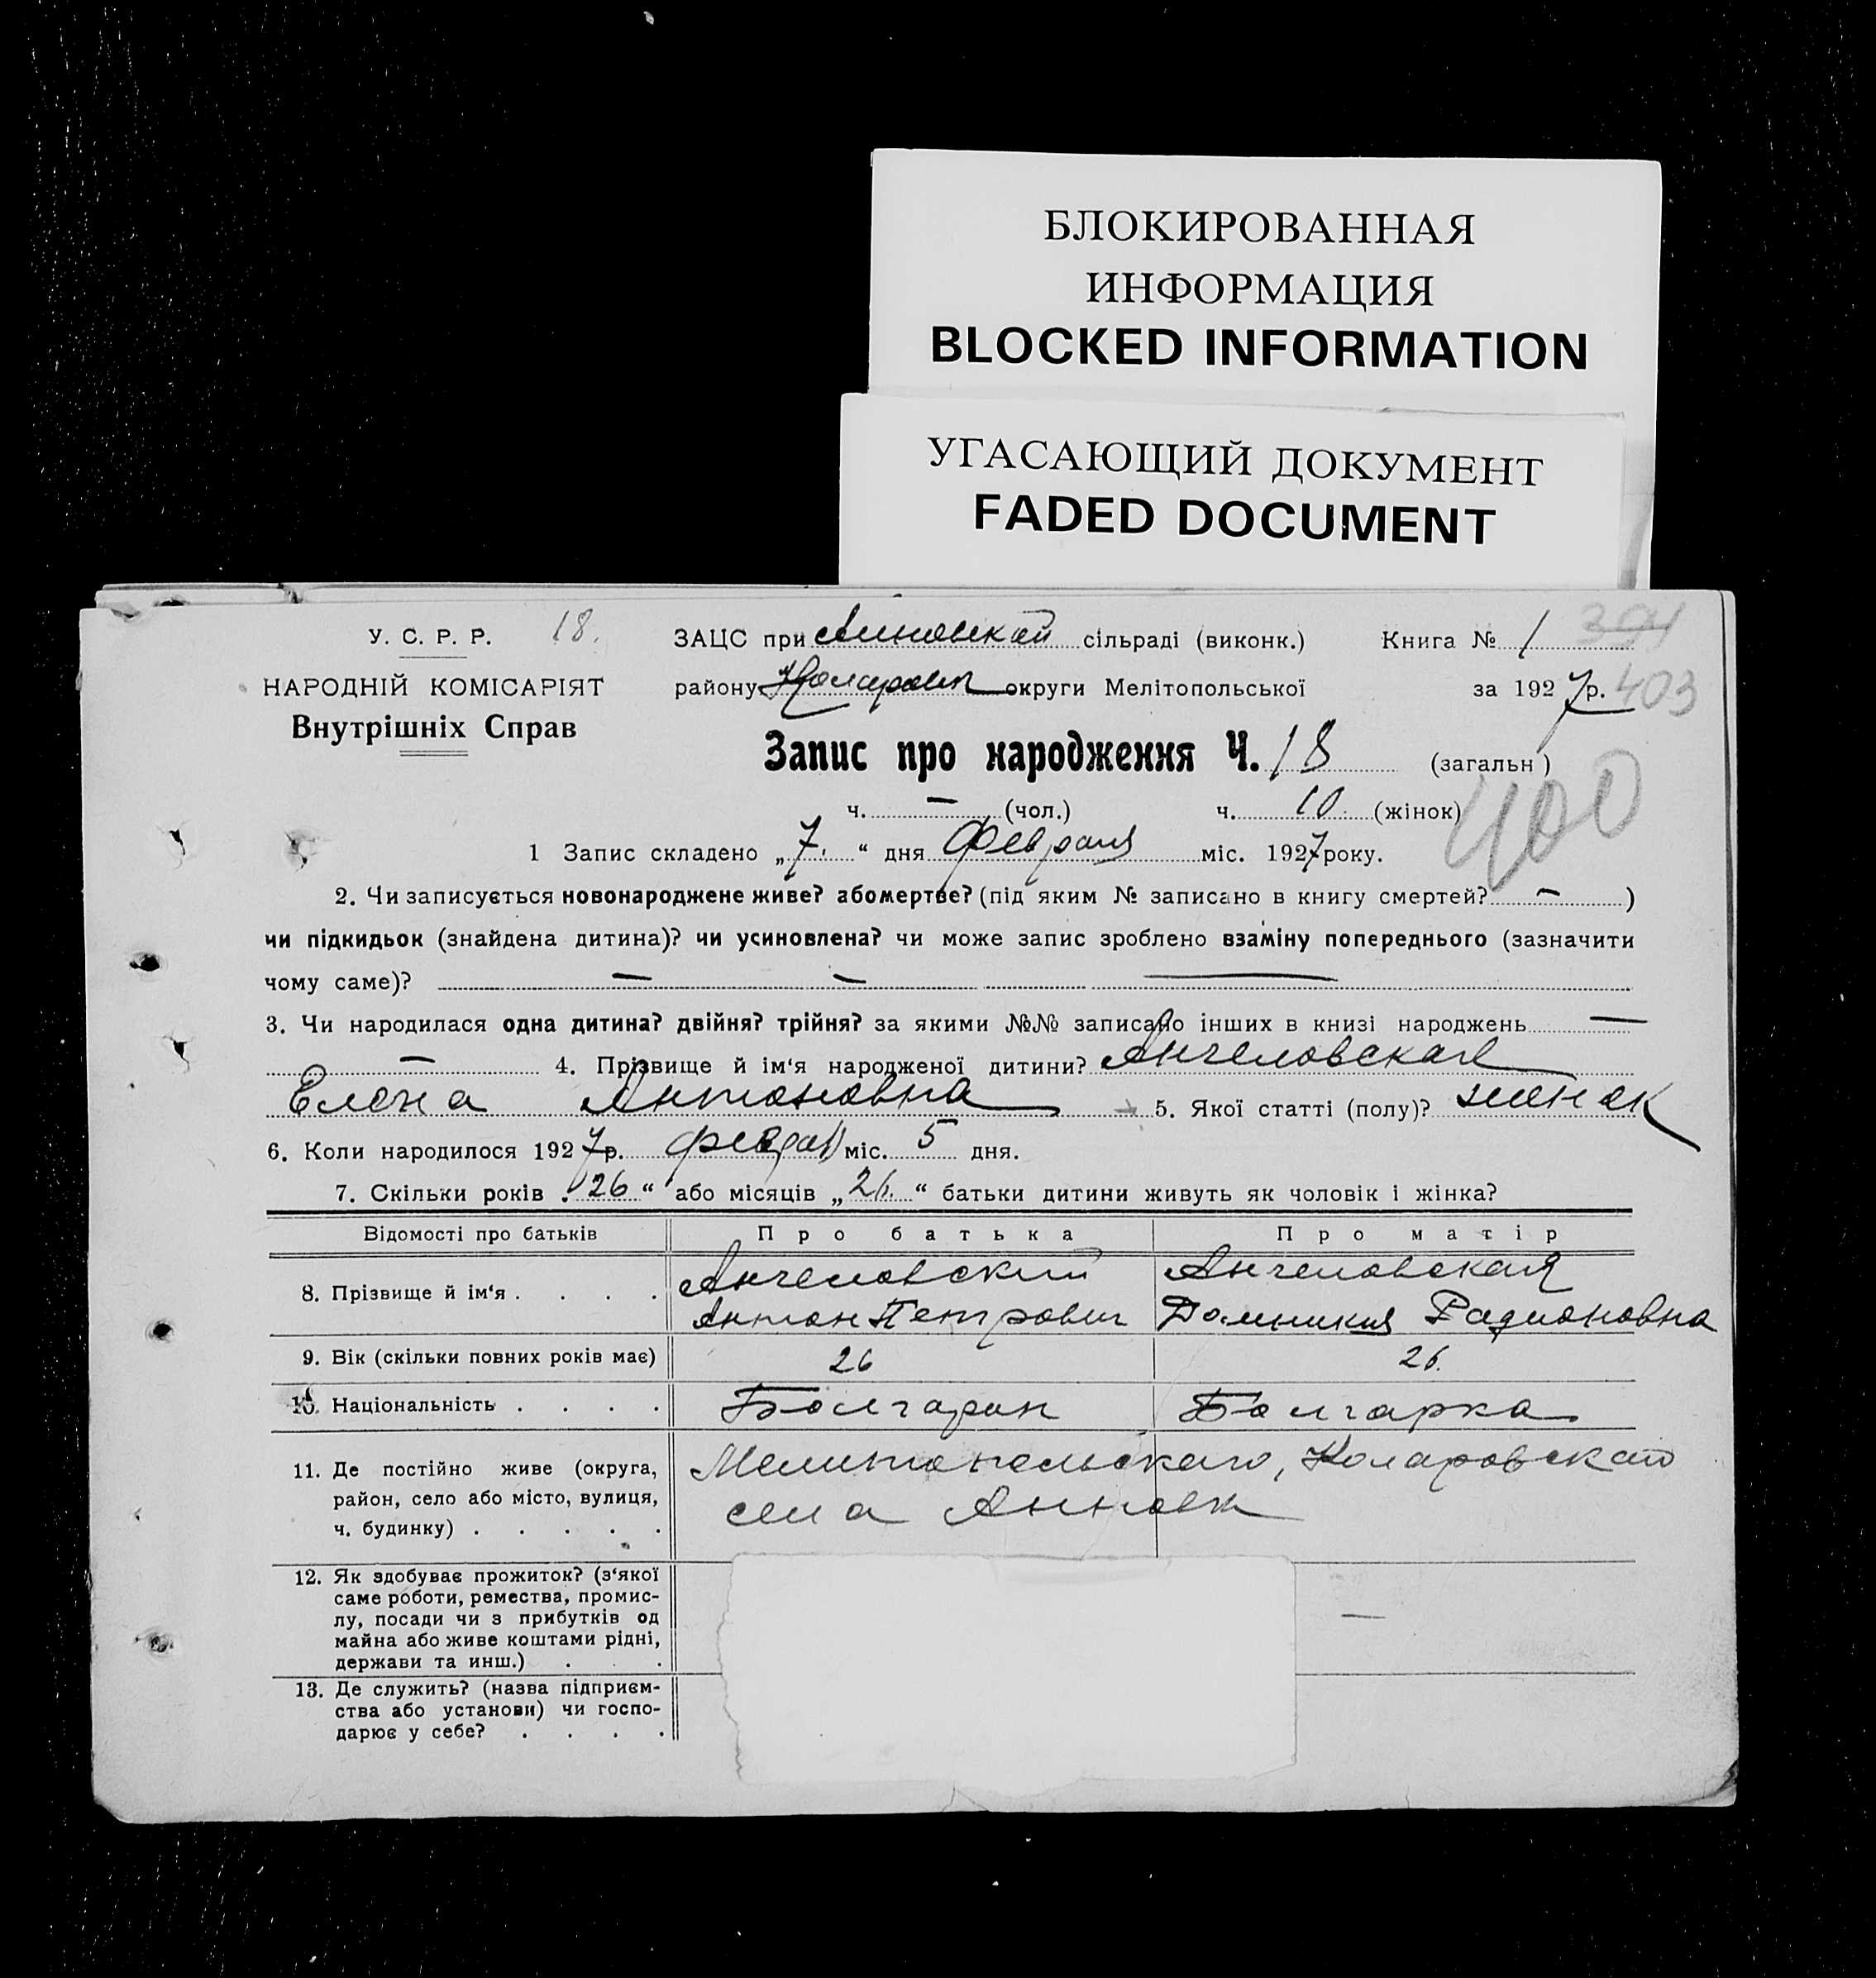 БЛОКИРОВАННАЯ
ИНФОРМАЦИЯ
BLOCKED INFORMATION
УГАСАЮЩИЙ ДОКУМЕНТ
FADED DOCUMENT
У. С. Р. Р. 18. ЗАЦС при сільраді (виконк.) Книга № 1 394
НАРОДНІЙ КОМІСАРІЯТ району Коларовск округи Мелітопольської за 1927 р. 403
Внутрішніх Справ
Запис про народження Ч. 18 (загальн)
ч. — (чол.) ч. 10 (жінок) 400
1 Запис складено „7.“ дня Февраля міс. 1927 року.
2. Чи записується новонароджене живе? або мертве? (під яким № записано в книгу смертей? — )
чи підкидьок (знайдена дитина)? чи усиновлена? чи може запис зроблено взаміну попереднього (зазначити
чому саме)? — — —
3. Чи народилася одна дитина? двійня? трійня? за якими №№ записано інших в книзі народжень —
— 4. Прізвище й ім'я народженої дитини? Ангеловская
Елена Антоновна 5. Якої статті (полу)? женск
6. Коли народилося 1927 р. феврал міс. 5 дня.
7. Скільки років „26“ або місяців „26.“ батьки дитини живуть як чоловік і жінка?
Відомості про батьків Про батька Про матір
8. Прізвище й ім'я . . . . Ангеловский Ангеловская
Антон Петрович Домникия Радионовна
9. Вік (скільки повних років має) 26 26.
10. Національність . . . . Болгарин Болгарка
11. Де постійно живе (округа, Мелитопольского, Коларовского
район, село або місто, вулиця, села Анновк
ч. будинку) . . . . .
12. Як здобуває прожиток? (з'якої
саме роботи, ремества, промис-
лу, посади чи з прибутків од —
майна або живе коштами рідні,
держави та инш.) . . .
13. Де служить? (назва підприєм-
ства або установи) чи госпо-
дарює у себе? . . . .